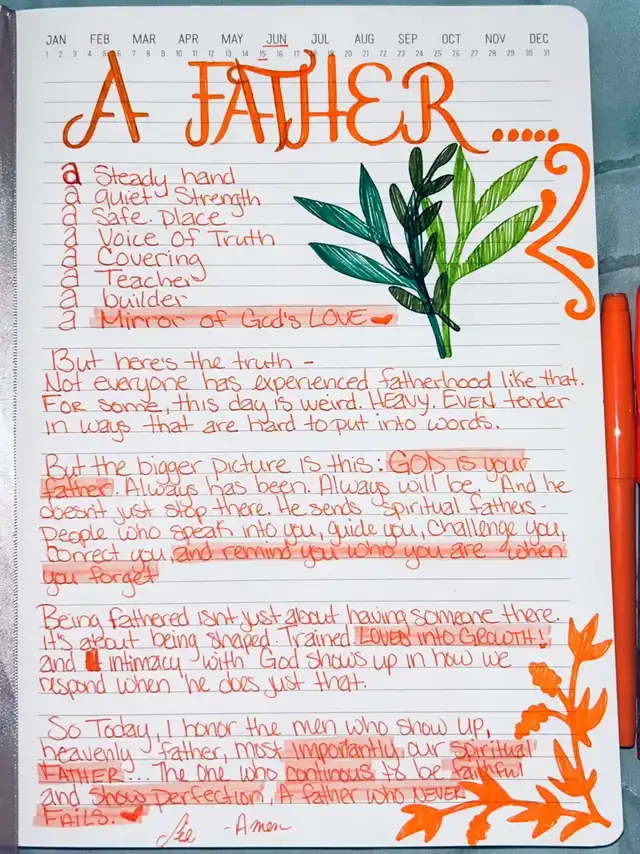 JAN FEB MAR APR MAY JUN JUL AUG SEP OCT NOV DEC
1 2 3 4 5 6 7 8 9 10 11 12 13 14 15 16 17 18 19 20 21 22 23 24 25 26 27 28 29 30 31
A FATHER.....
a Steady hand
a quiet Strength
a Safe Place
a Voice Of Truth
a Covering
a Teacher
a builder
a Mirror of God's LOVE ❤
But here's the truth -
Not everyone has experienced fatherhood like that.
For some, this day is weird. HEAVY. EVEN tender
in ways that are hard to put into words.
But the bigger picture is this: GOD is your
father. Always has been. Always will be. And he
doesn't just stop there. He sends spiritual fathers -
people who speak into you, guide you, Challenge you,
Correct you, and remind you who you are when
you forget
Being fathered isnt just about having someone there.
it's about being shaped. Trained. LOVED into GROWTH!
and intimacy with God shows up in how we
respond when he does just that.
So Today, I honor the men who show up,
heavenly father, most importantly, our spiritual
FATHER... The one who continous to be faithful
and show perfection, A father who NEVER
FAILS. ❤
-Amen